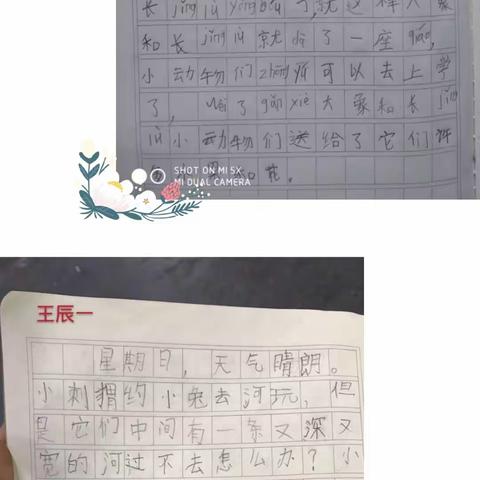 和长jǐng lù就dā了一座qiáo,
小动物们zhōng yú可以去上学
了, wèi了gǎn xiè大象和长jǐng
lù小动物们送给了它们许
花。
SHOT ON MI 5X
MI DUAL CAMERA
王辰一
星期日,天气晴朗。
小刺猬约小兔去河玩,但
是它们中间有一条又深又
宽的河过不去怎么办?小